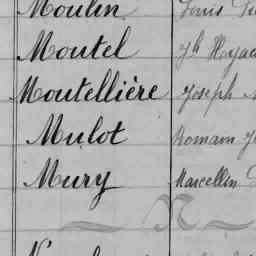 Moulin Louis
Moutel Jh Hya
Moutellière Joseph
Mulot Romain
Mury Marcellin
N